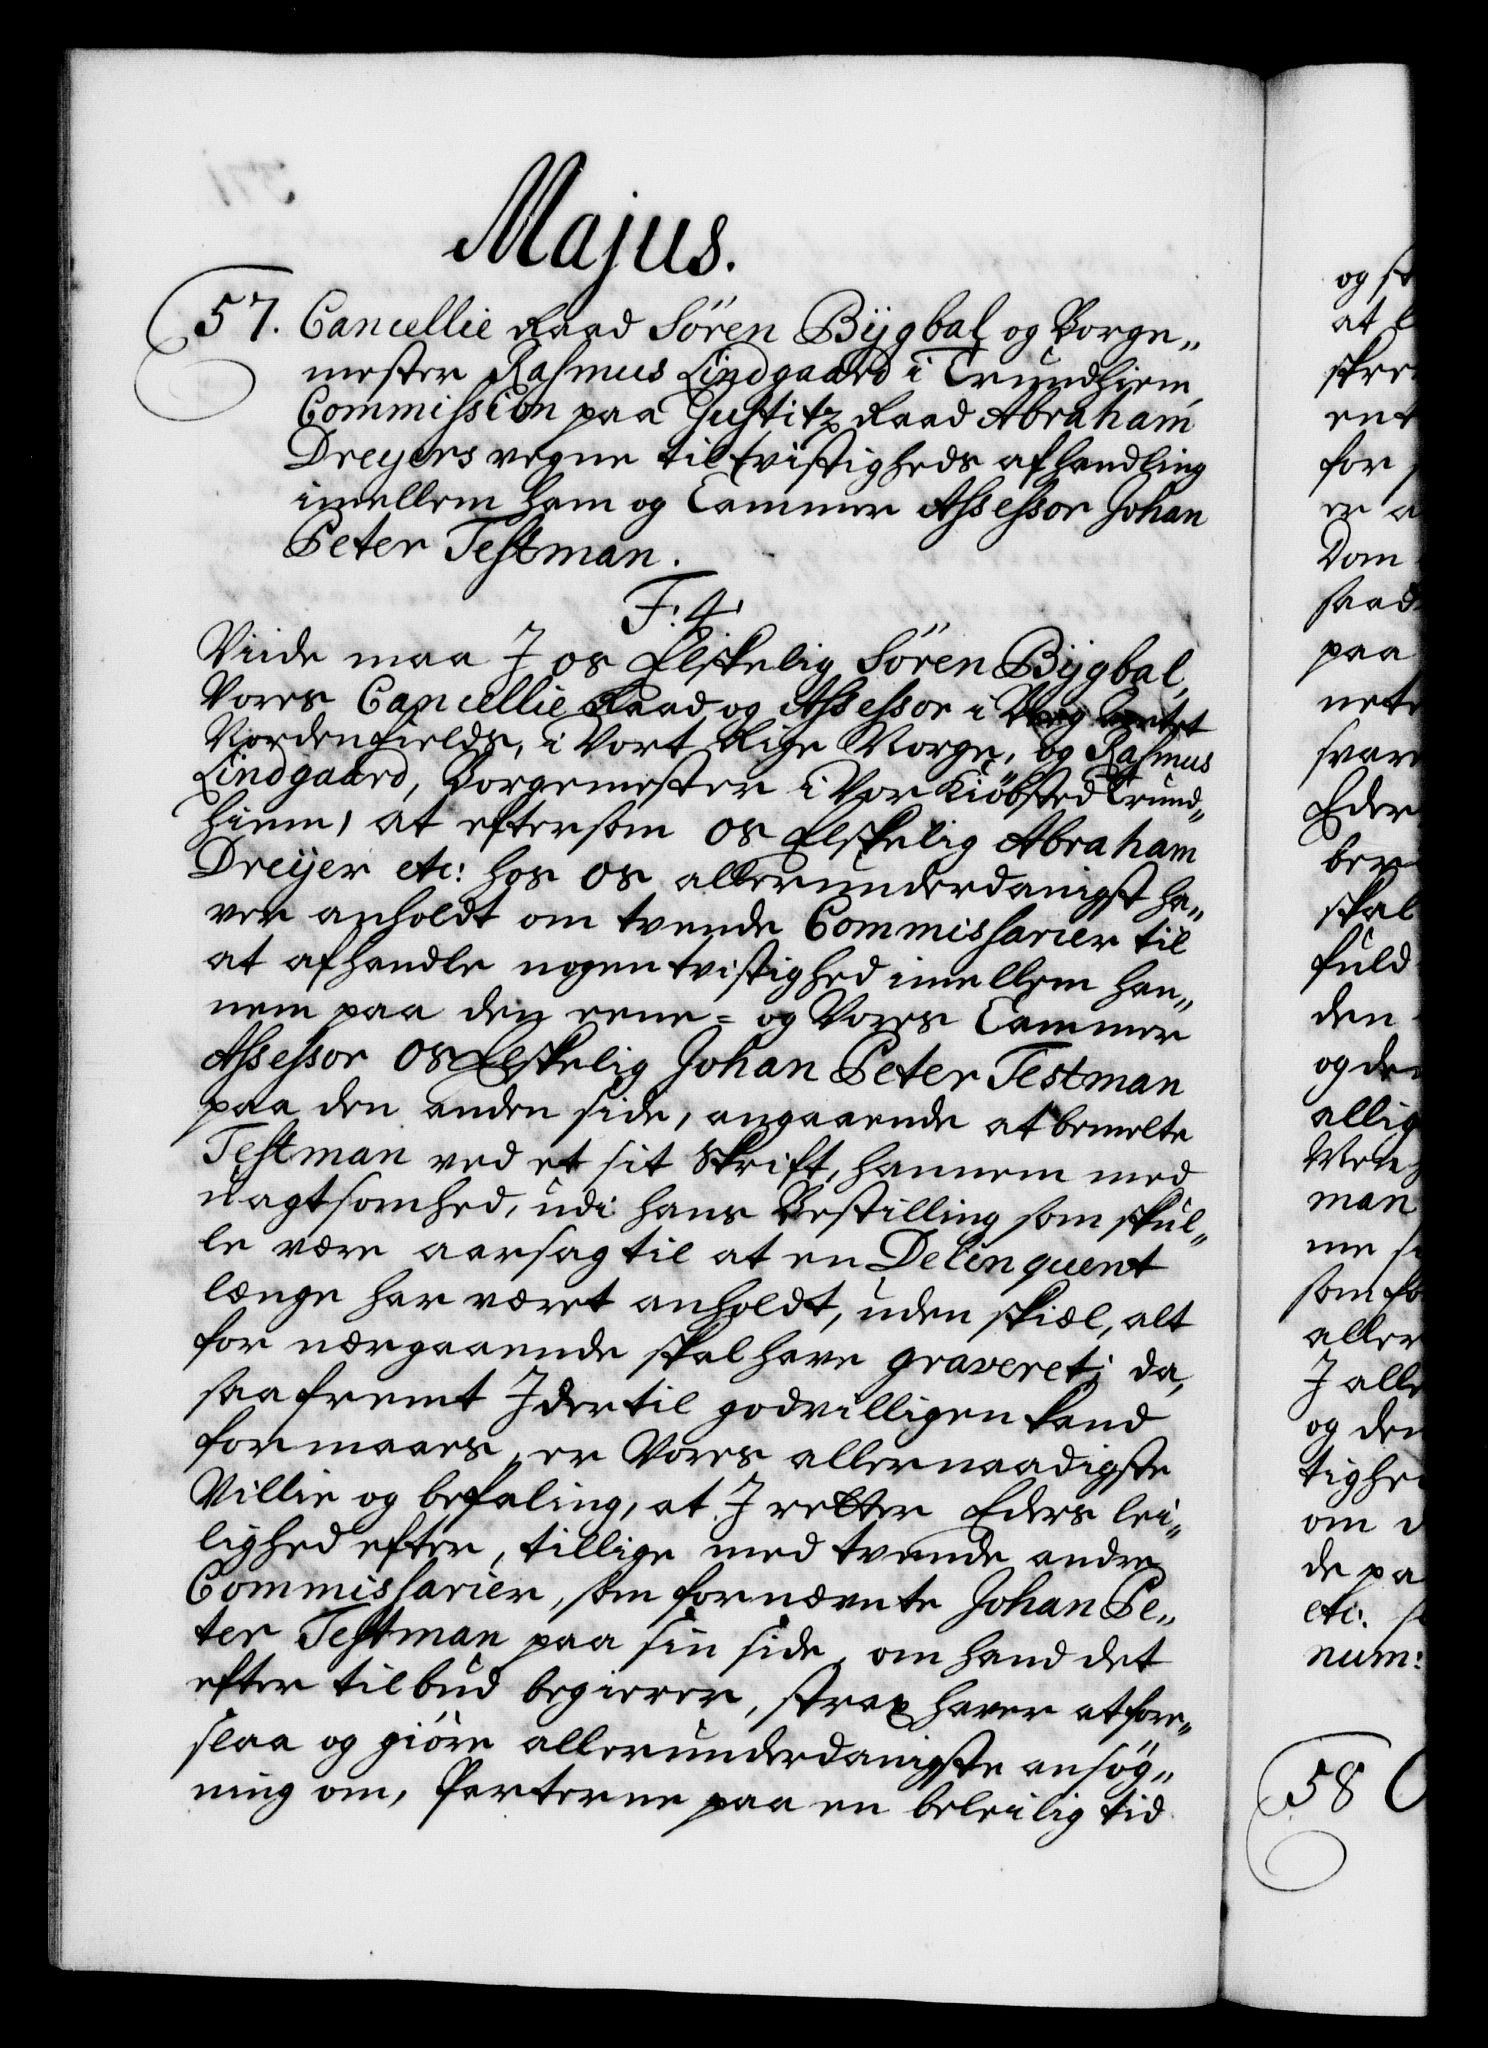 Majus.
57. Cancellie Raad Sören Bÿgbal og Borge„
mester Rasmus Lindgaard i Trundhiem,
Commission paa Justitz Raad Abraham
Dreyers vegne til tvistigheds afhandling
imellem ham og Cammer Assessor Johan
Peter Testman.
F: 4.
Viide maa J os Elskelig Sören Bÿgbal,
Vores Cancellie Raad og Assessor i
Nordenfields, i Vort Rige Norge, og Rasmus
Lindgaard, Borgemester i Vor Kiöbsted Trund„
hiem, at eftersom os Elskelig Abraham
Dreÿer etc: hos os allerunderdanigst ha„
ver anholdt om tvende Commissarier til
at afhandle nogen tvistighed imellem han„
nem paa den eene = og Vores Cammer
Assessor os Elskelig Johan Peter Testman
paa den anden side, angaaende at bemelte
Testman ved et sit Skrift, hannem med
uagtsomhed, udi hans Bestilling som skul„
le være aarsag til at en Delinquent
længe har været anholdt, uden skiæl, alt
for nærgaaende skal have graveret; da,
saafremt J dertil godvilligen kand
formaaes, er Vores allernaadigste
Villie og befaling, at J retter Eders lei„
lighed efter, tillige med tvende andre
Commissarier, som fornævnte Johan Pe„
ter Testman paa sin side, om hand det
efter tilbud begierer, strax haver at fore„
slaa og giöre allerunderdanigste ansög„
ning om, Parterne paa en beleilig tid
og
at
for
Dom
paa
Eder
skal
fuld
den
og de
allig
man
som fo
aller
J alle
og den
tighe
om
de pa
etc:
num:
58